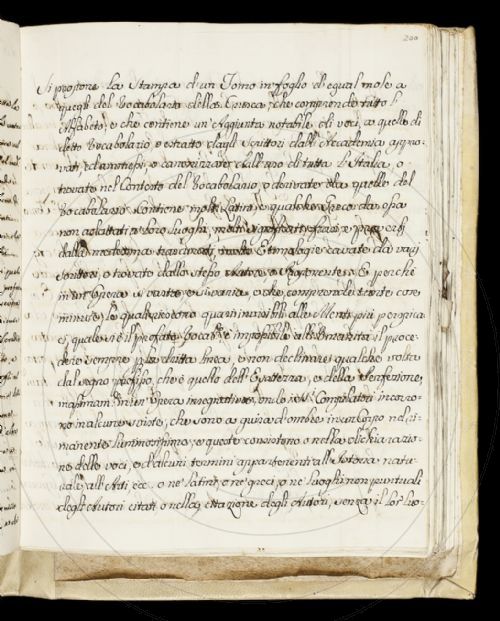 200
Si propone La Stampa d'un Tomo in foglio di egual mole a
quegli del Vocabolario della Crusca, che comprende tutto l'
Alfabeto, e che contiene un'Aggiunta notabile di voci a quelle di
detto Vocabolario e estratte dagli Scrittori dall'Accademia appro-
vati, ed antichi, o canonizzate dall'uso di tutta l'Italia, o
trovate nel Contesto del Vocabolario, o derivate da quelle del
Vocabolario. Contiene molti Latini, e qualche Greco da essa
non adattati a loro luoghi, molti significati, frasi, e proverbj
dalla medesima tracurati, molte Etimologie cavate da varj
Scrittori, o trovate dallo stesso Autore e Sponente. E perché
in un'Opera sì vasta, e sì varia, e che comprende tante cose
minute, le quali vedono quasi invisibili alle Menti più perspica-
ci, quale si è il prefato Vocab.º è impossibile all'Umanità il proce-
dere sempre per diritta linea, e non declinare qualche volta
dal segno prefisso, che è quello dell'Esattezza, e della Perfezione,
massimam.te in un'Opera
ro in alcune sviste, che sono a guisa d'ombre in un Corpo nel ri-
manente luminosissimo, e queste consistono o nella dichiarazio-
ne delle voci, e d'alcuni termini appartenenti all'Istoria natu-
rale, all'Arti ecc. o ne' latini, o ne' greci, o ne' luoghi non puntuali
degli Autori citati, o nella citazione degli Autori, senza il lor luo-